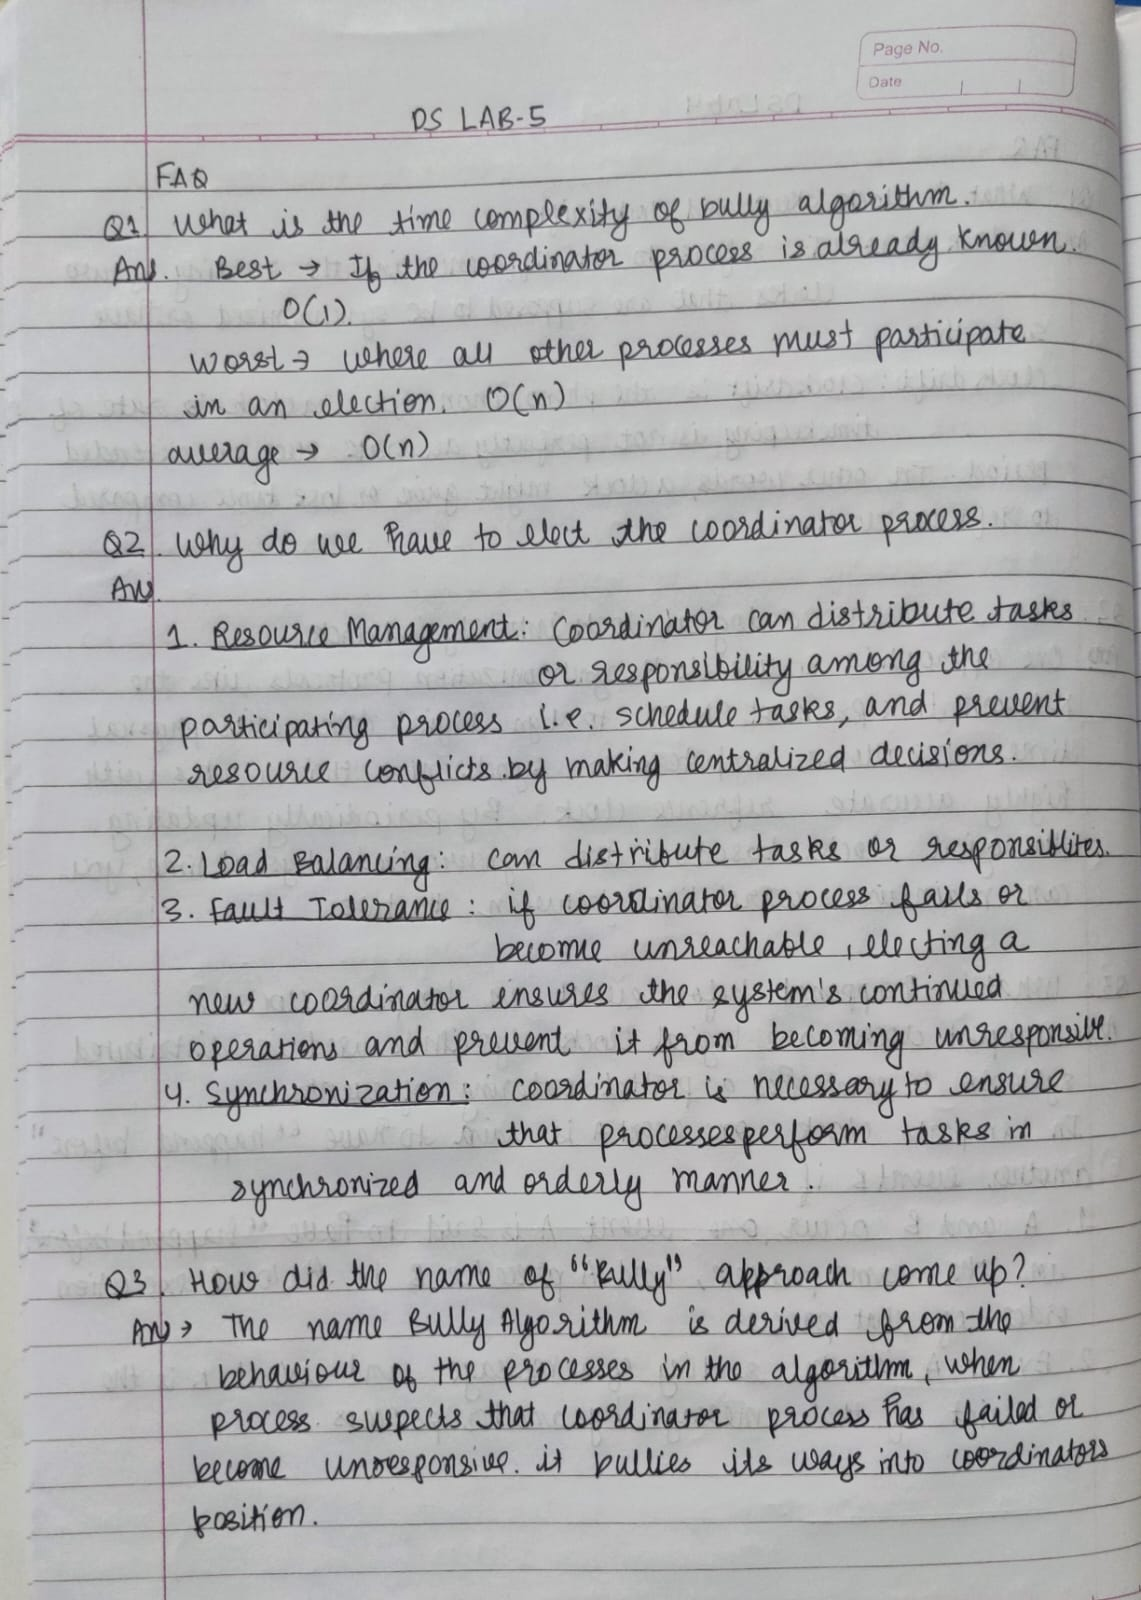 Page No.
Date
DS LAB-5
FAQ
Q1. What is the time complexity of bully algorithm.
Ans. Best → If the coordinator process is already known.
O(1).
Worst → where all other processes must participate
in an election. O(n)
average → O(n)
Q2. Why do we have to elect the coordinator process.
Ans.
1. Resource Management: Coordinator can distribute tasks
or responsibility among the
participating process i.e. schedule tasks, and prevent
resource conflicts by making centralized decisions.
2. Load Balancing: can distribute tasks or responsiblites.
3. Fault Tolerance: if coordinator process fails or
become unreachable, electing a
new coordinator ensures the system's continued
operations and prevent it from becoming unresponsive.
4. Synchronization: coordinator is necessary to ensure
that processes perform tasks in
synchronized and orderly manner.
Q3. How did the name of "Bully" approach come up?
Ans → The name Bully Algorithm is derived from the
behaviour of the processes in the algorithm, when
process suspects that coordinator process has failed or
become unresponsive. it bullies its ways into coordinators
position.